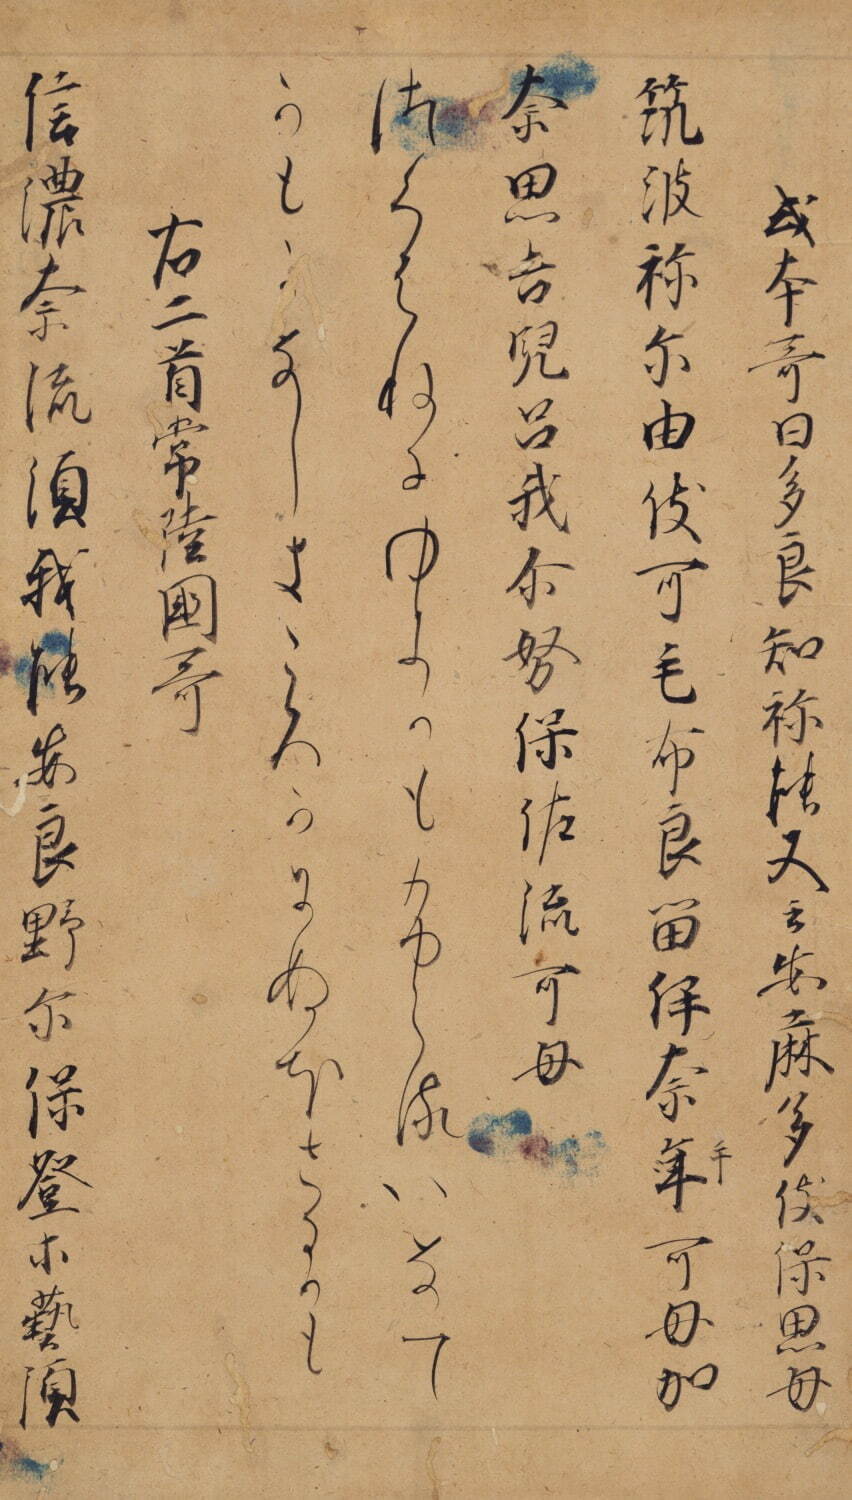 或本哥曰多良知祢能又云安麻多伎保思母
筑波祢尓由伎可毛布良留伊奈年乎可母加
奈思吉兒呂我尓努保佐流可母
つくはねにゆきかもふらるいなて
かもかなしきころかにぬほさるかも
右二首常陸國哥
信濃奈流湏我能安良野尓保登等藝湏